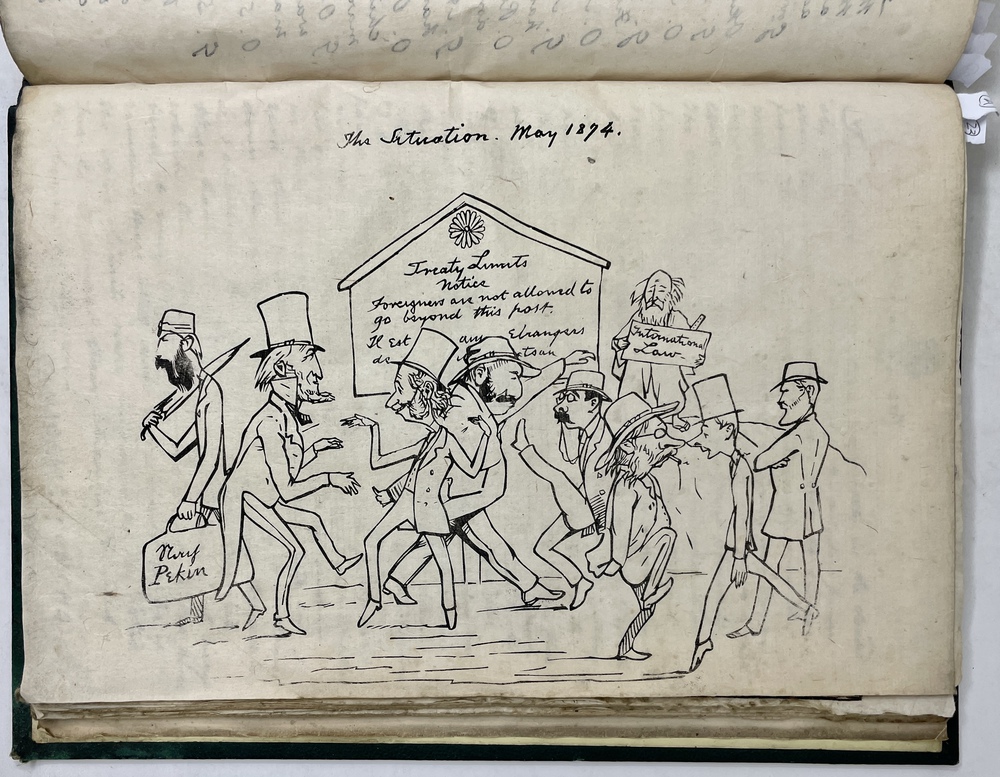 The Situation. May 1874.
Treaty Limits
Notice
Foreigners are not allowed to
go beyond this post.
Il Est Etrangers
de
International
Law
Pekin